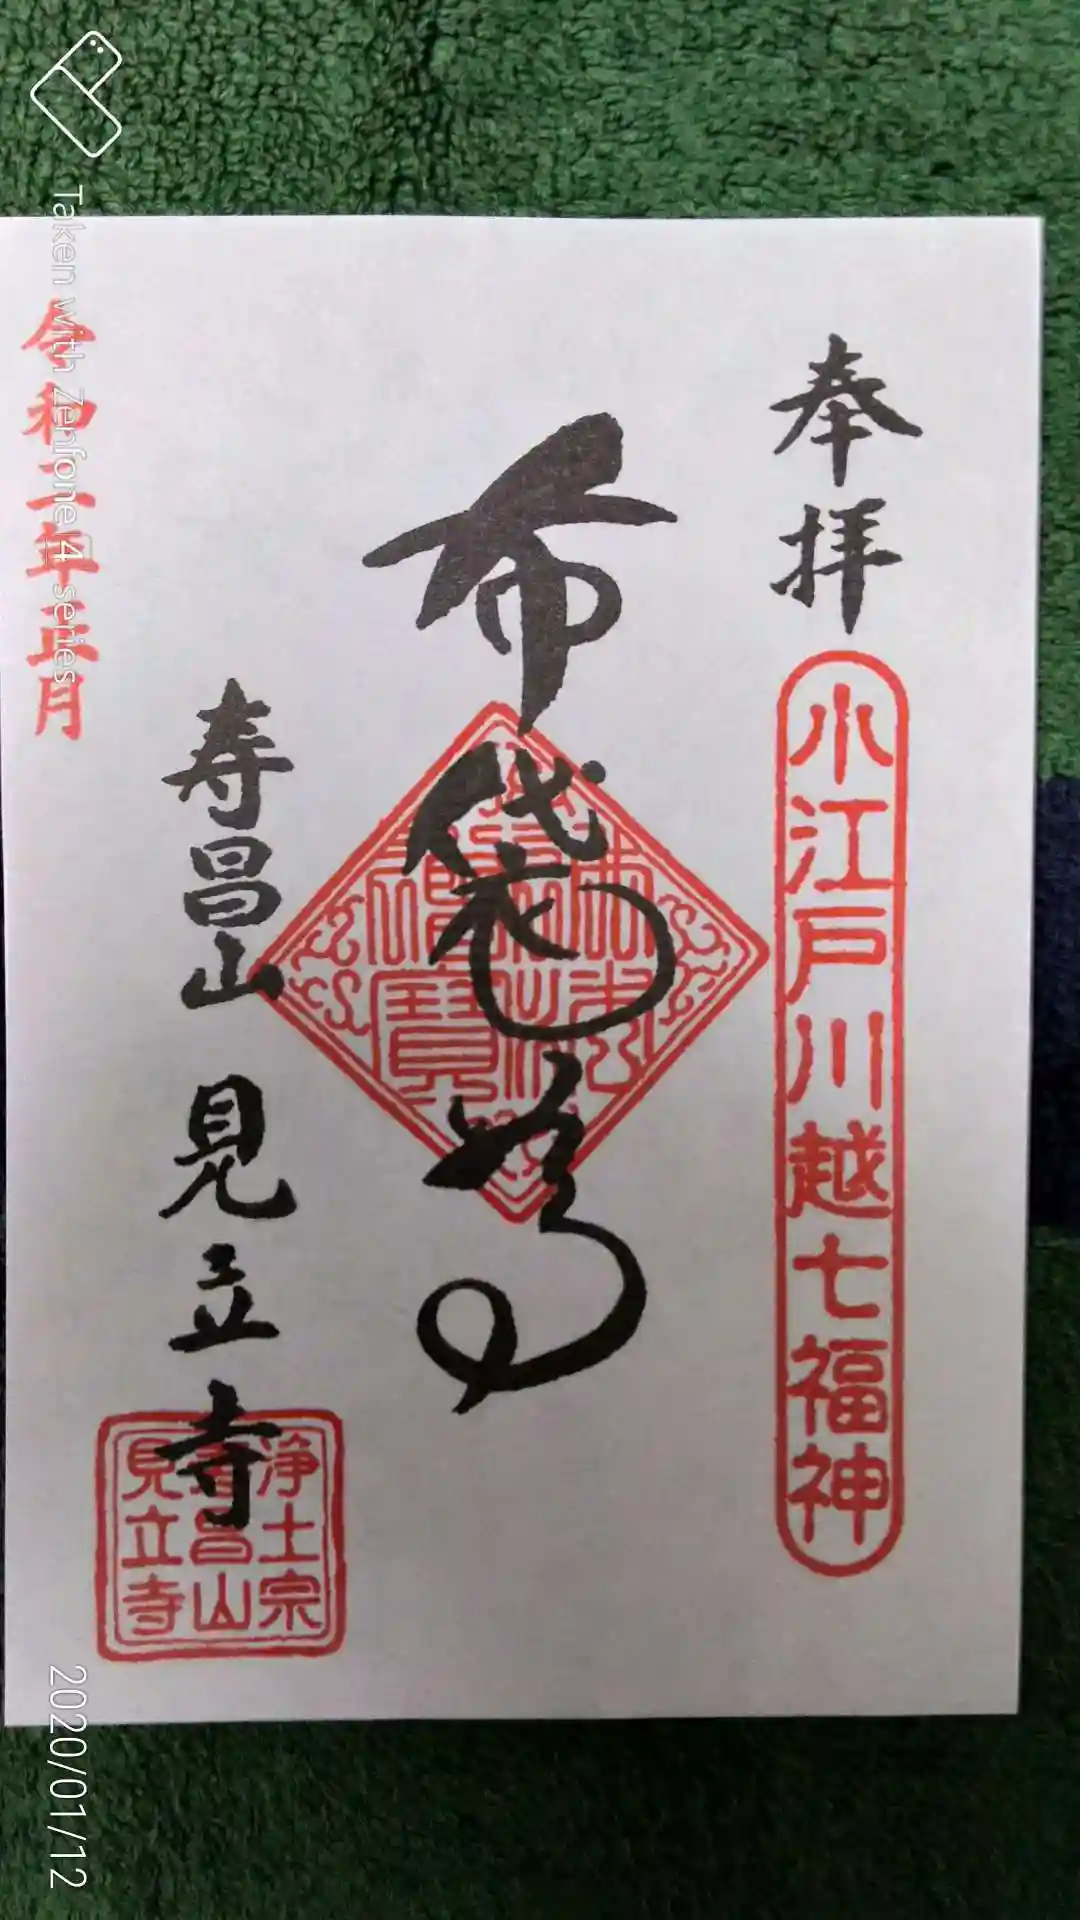 奉拝
小江戸川越七福神
布袋尊
佛法僧寶
寿昌山 見立寺
浄土宗
寿昌山
見立寺
令和二年正月
Taken with Zenfone 4 series
2020/01/12